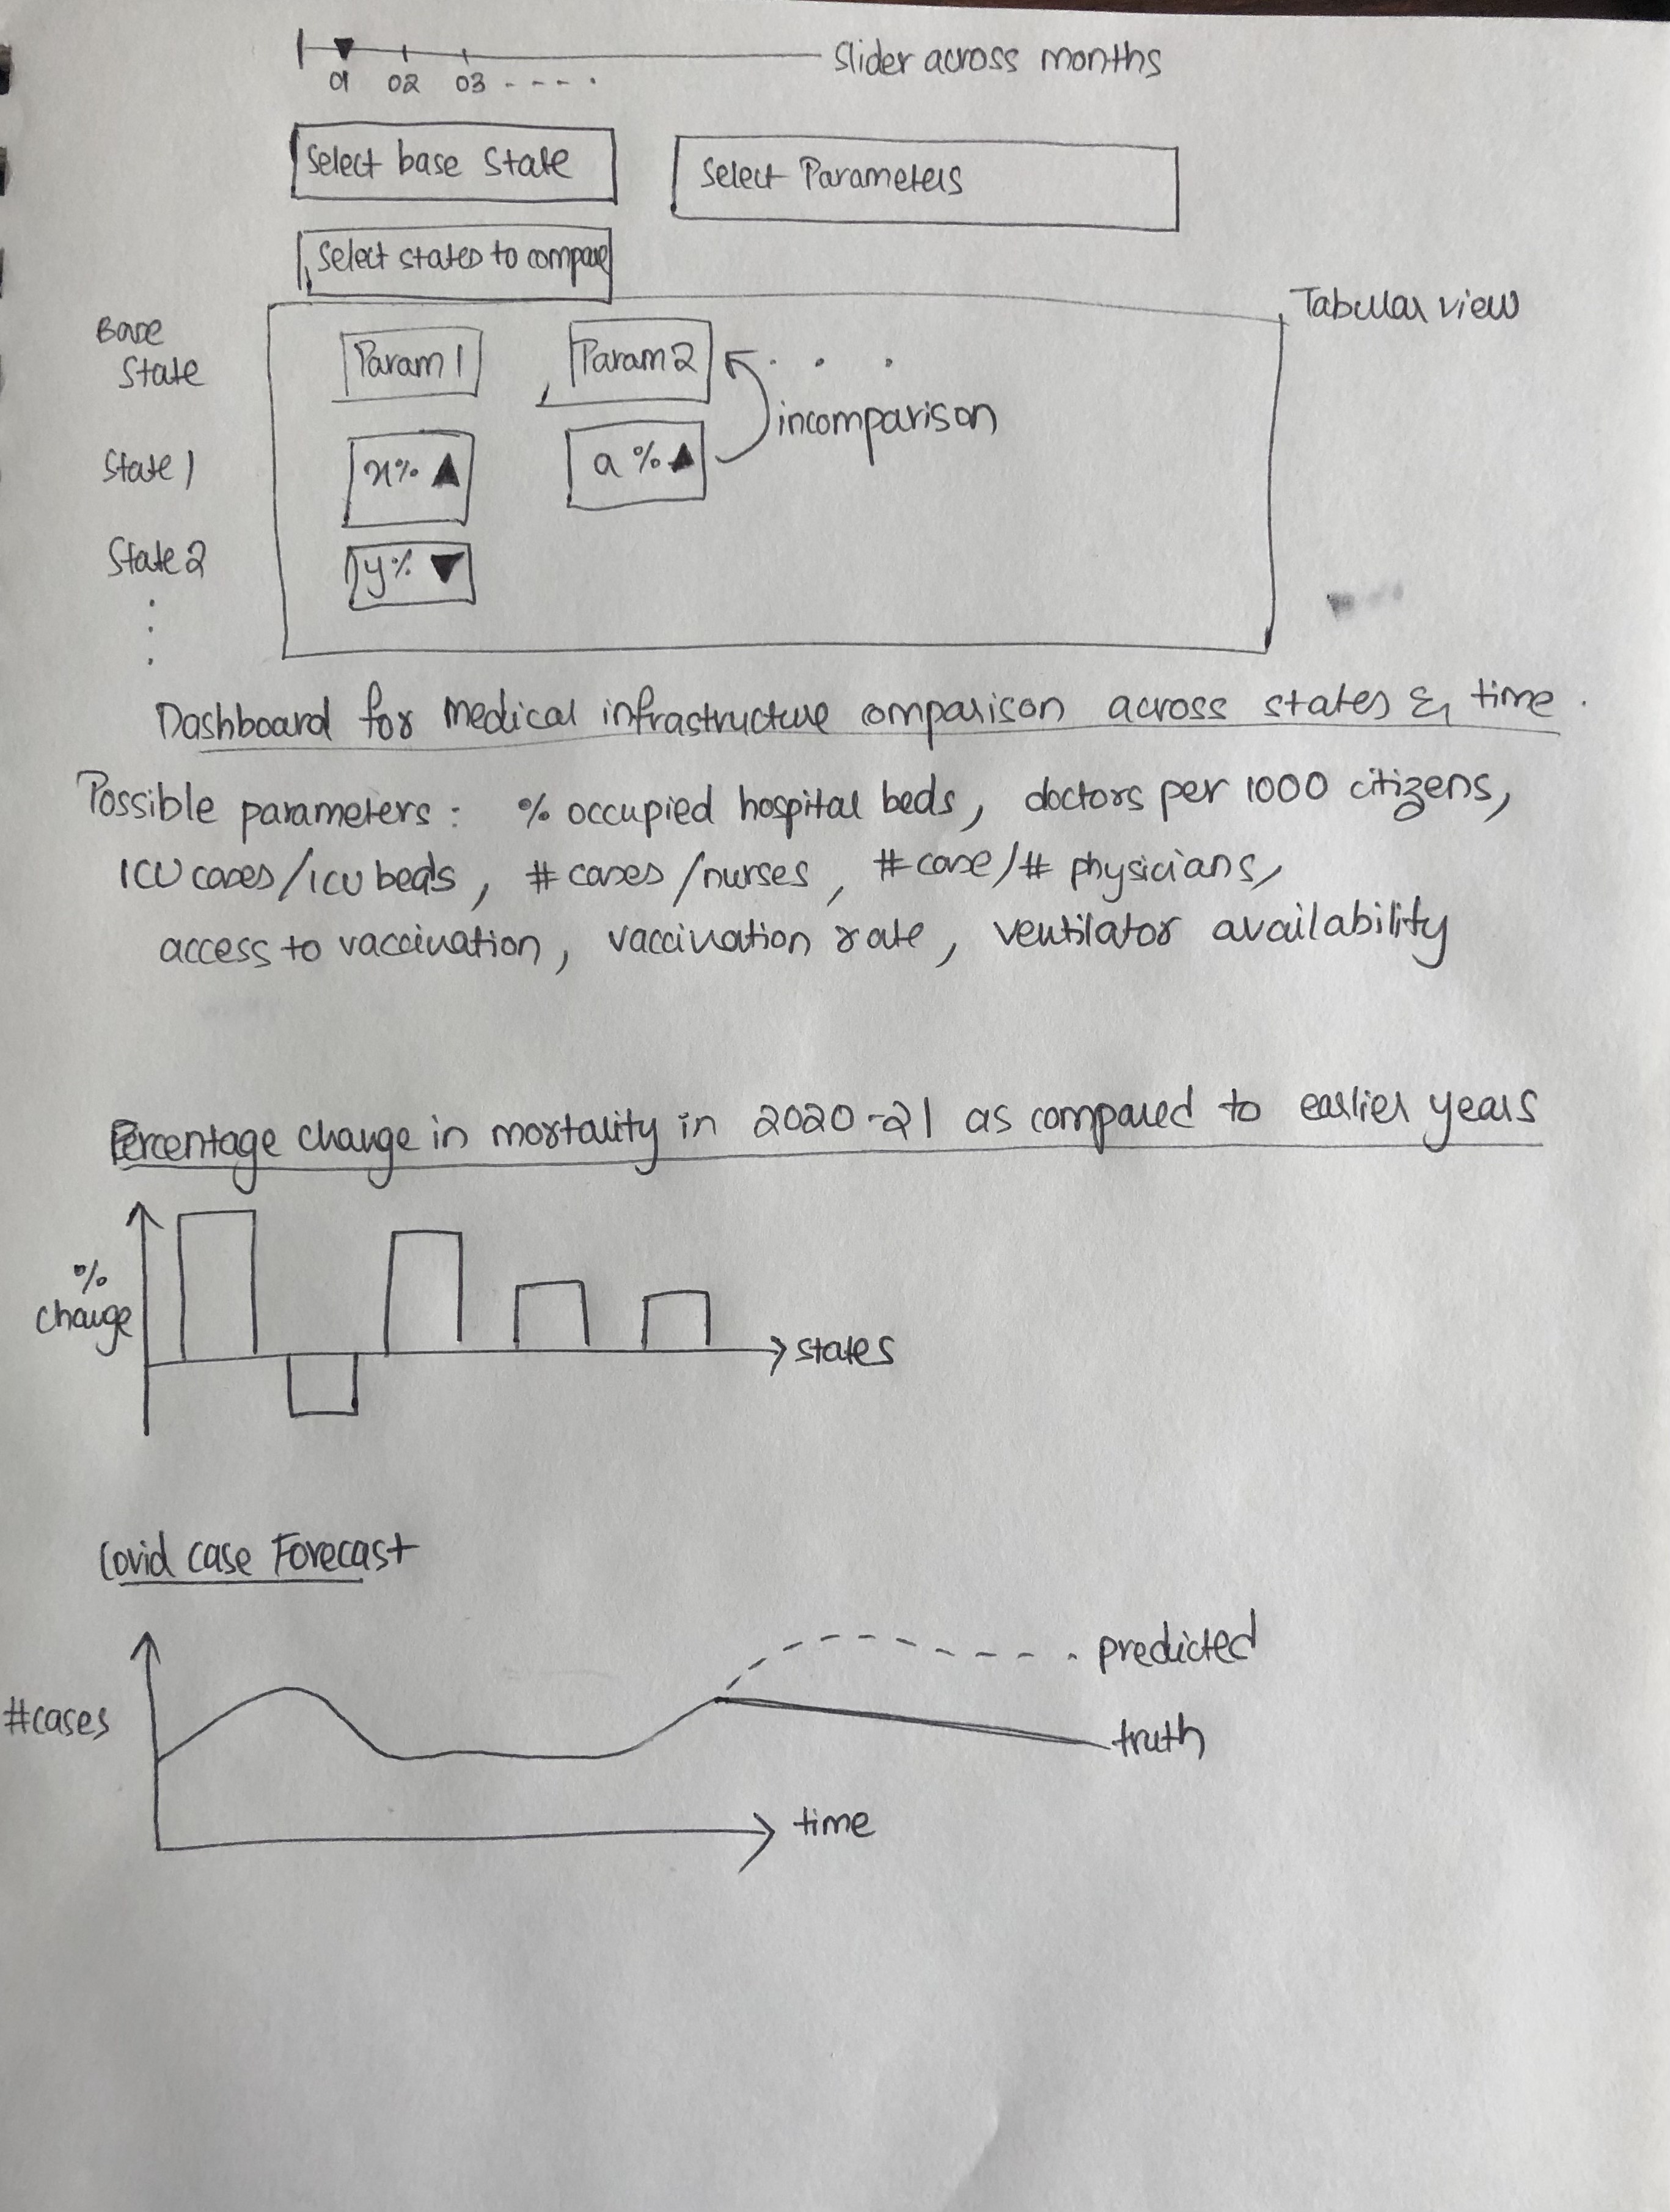 Slider across months
01 02 03 - - - - .
Select base state
Select Parameters
Select states to compare
Tabular view
Base
State
Param 1
Param 2
. . .
in comparison
State 1
x% ▲
a % ▲
State 2
y% ▼
Dashboard for medical infrastructure comparison across states & time.
Possible parameters : % occupied hospital beds, doctors per 1000 citizens,
ICU cases/ICU beds, # cases /nurses, # case/# physicians,
access to vaccination, vaccination rate, ventilator availability
Percentage change in mortality in 2020-21 as compared to earlier years
%
change
states
Covid case Forecast
predicted
#cases
truth
time